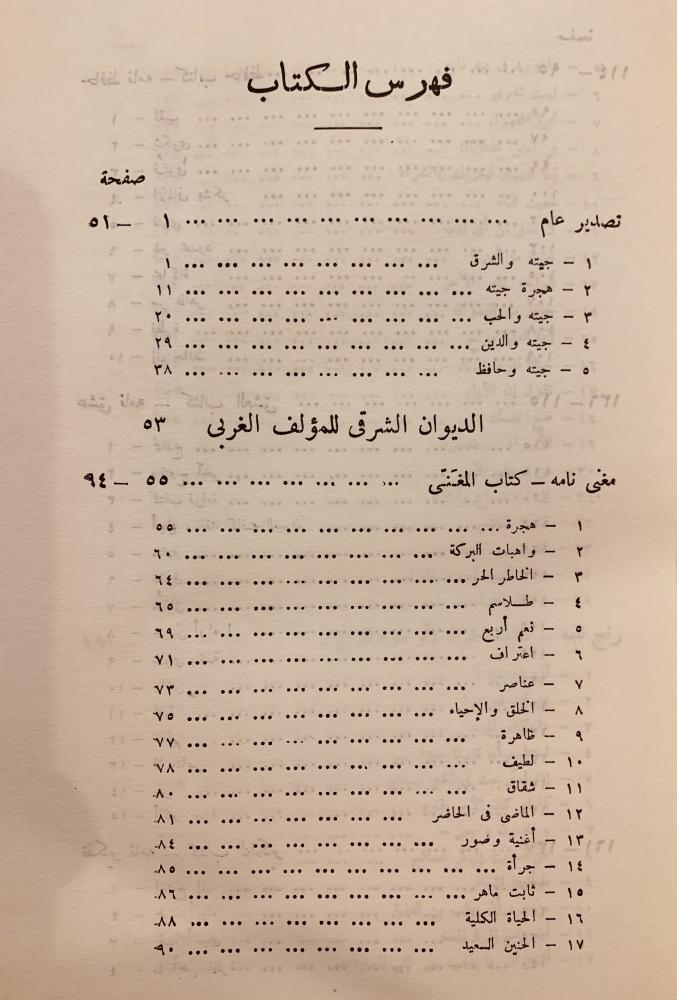 فهرس الكتاب
صفحة
تصدير عام ... ... ... ... ... ... ... ... ... ... ١ — ٥١
١ — جيته والشرق ... ... ... ... ... ... ... ... ١
٢ — هجرة جيته ... ... ... ... ... ... ... ... ... ١١
٣ — جيته والحب ... ... ... ... ... ... ... ... ... ٢٠
٤ — جيته والدين ... ... ... ... ... ... ... ... ... ٢٩
٥ — جيته وحافظ ... ... ... ... ... ... ... ... ٣٨
الديوان الشرقى للمؤلف الغربى ٥٣
مغنى نامه — كتاب المغنّى ... ... ... ... ... ... ... ٥٥ — ٩٤
١ — هجرة ... ... ... ... ... ... ... ... ... ... ٥٥
٢ — واهبات البركة ... ... ... ... ... ... ... ... ٦٠
٣ — الخاطر الحر ... ... ... ... ... ... ... ... ... ٦٤
٤ — طلاسم ... ... ... ... ... ... ... ... ... ٦٥
٥ — نعم أربع ... ... ... ... ... ... ... ... ... ٦٩
٦ — اعتراف ... ... ... ... ... ... ... ... ... ٧١
٧ — عناصر ... ... ... ... ... ... ... ... ... ٧٣
٨ — الخلق والإحياء ... ... ... ... ... ... ... ... ٧٥
٩ — ظاهرة ... ... ... ... ... ... ... ... ... ٧٧
١٠ — لطيف ... ... ... ... ... ... ... ... ... ٧٨
١١ — شقاق ... ... ... ... ... ... ... ... ... ٨٠
١٢ — الماضى فى الحاضر ... ... ... ... ... ... ... ٨١
١٣ — أغنية وضور ... ... ... ... ... ... ... ... ٨٤
١٤ — جرأة ... ... ... ... ... ... ... ... ... ... ٨٥
١٥ — ثابت ماهر ... ... ... ... ... ... ... ... ... ٨٦
١٦ — الحياة الكلية ... ... ... ... ... ... ... ... ٨٨
١٧ — الحنين السعيد ... ... ... ... ... ... ... ... ٩٠